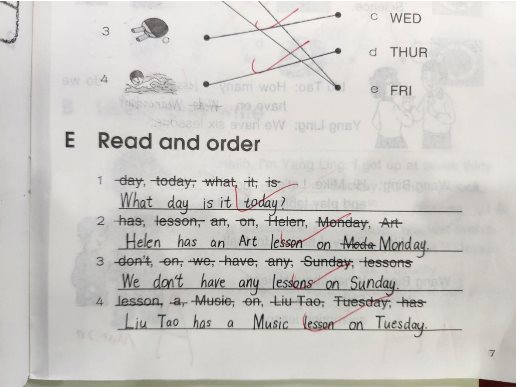 c WED
3
d THUR
4
e FRI
E Read and order
1 day, today, what, it, is
What day is it today?
2 has, lesson, an, on, Helen, Monday, Art
Helen has an Art lesson on Moda Monday.
3 don't, on, we, have, any, Sunday, lessons
We don't have any lessons on Sunday.
4 lesson, a, Music, on, Liu Tao, Tuesday, has
Liu Tao has a Music lesson on Tuesday.
7